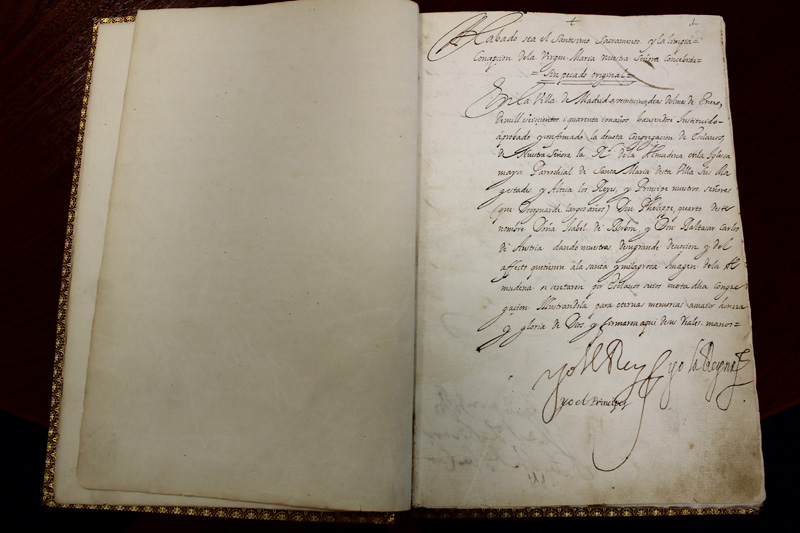 Alabado sea el Santisimo Sacramento y la limpia=
Concepcion dela Virgen Maria nuestra Señora Concebida=
= Sin pecado original =
En la Villa de Madrid a veinte dias del mes de Enero,
de mill seiscientos i quarenta años, haviendose Instituido
aprobado y confirmado la devota Congregacion de Esclavos,
de Nuestra Señora la Rl. de la Almudena en la Iglesia
mayor Parrochial de Santa Maria desta Villa Sus Ma
gestades, y Alteça los Reyes, y Principe nuestros señores
(que Dios guarde largos años) Don Phelippe quarto deste
nombre Doña Isabel de Borbon, y Don Baltasar Carlos
de Austria dando muestras de su grande devocion y del
affecto que tienen a la santa y milagrosa Imagen de la Al
mudena se sentaron por Esclavos suios en esta dha Congre
gacion Illustrandola para eternas memorias a maior honrra
y gloria de Dios y firmaron aqui de sus Reales manos=
yo el Rey yo la Reyna
yo el Principe